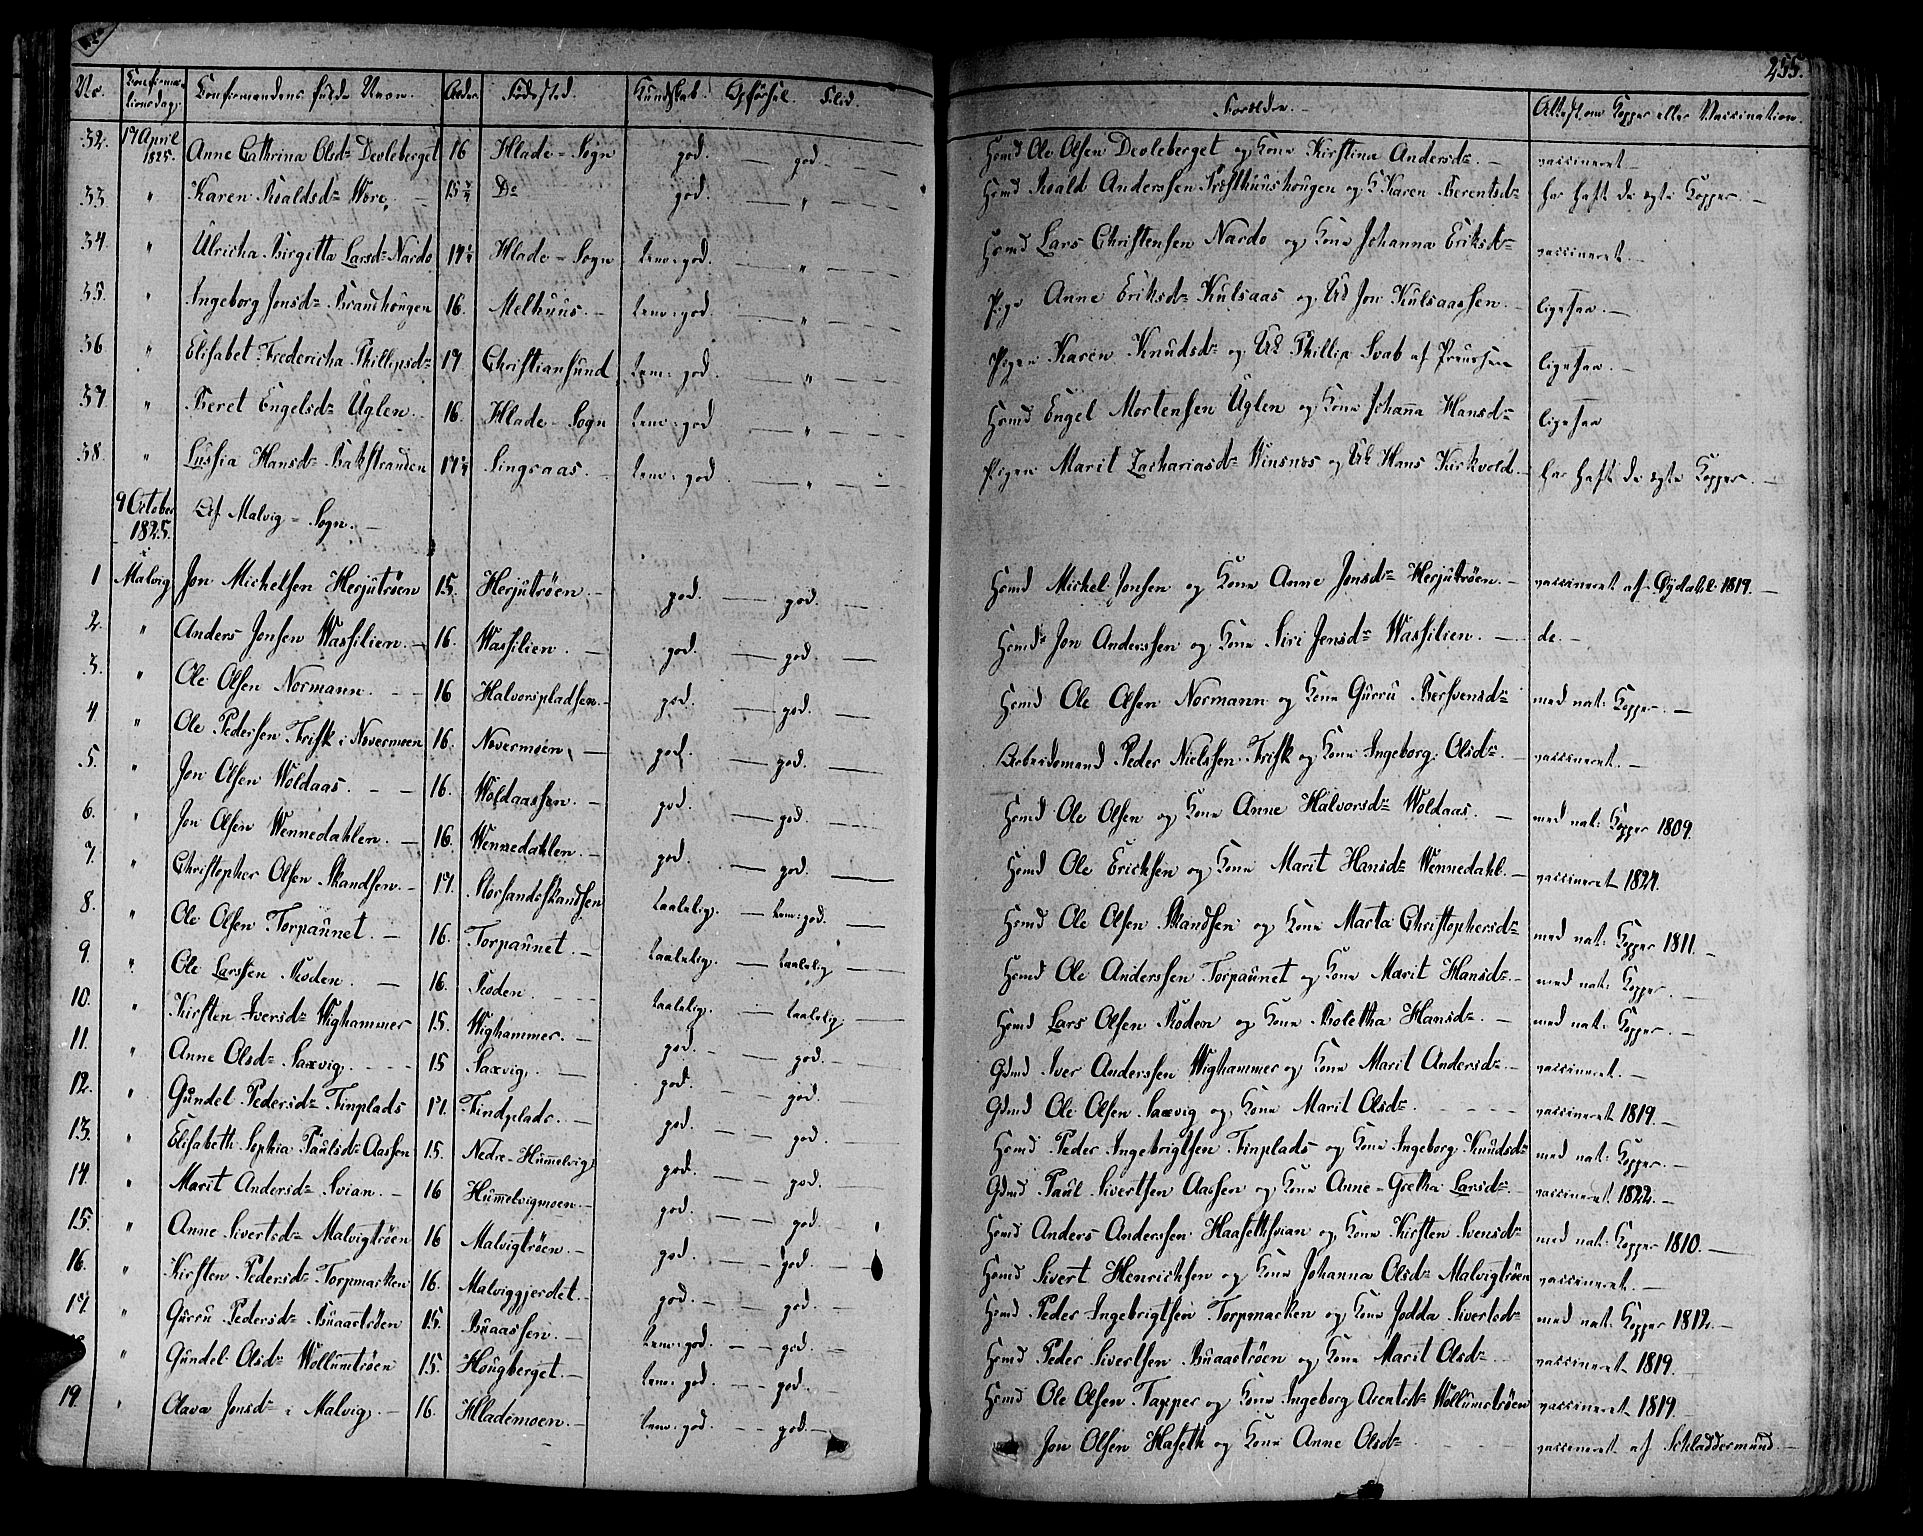 255.
No. Confirmationsdag. Confirmandens fulde Navn. Alder Fødested. Kundskab. Opførsel. Flid. Forældre. Attest om Kopper eller Vaccination.
32. 17 April 1825. Anne Cathrina Olsdr Devleberget 16 Hlade-Sogn god. god. Hsmd Ole Olsen Devleberget og Kone Kirstina Andersdr vaccineret
33 " Karen Roaldsdr Wore 15 Do god. " Hsmd Roald Anderssen Presthuushougen og K Karen Berentsdr har haft de ægte Kopper.
34. " Ulricha Birgitta Larsdr Nardo 17 Hlade-Sogn temi god. " Hsmd Lars Christensen Nardo og Kone Johanna Eriksdr vaccineret
35. " Ingeborg Jonsdr Brandhougen 16. Melhuus. temi god. " Pige Anne Eriksdr Kulsaas og Uk Jon Kulsaassen ligesaa.
36 " Elisabet Fredericha Phillipsdr 17 Christiansund tem: god. " Pigen Karen Knudsdr og Uk Phillip Svab af Preussen ligesaa.
37. " Beret Engelsdr Uglen 16. Hlade-Sogn temi god " Hsmd Engel Mortensen Uglen og Kone Johanna Hansdr ligesaa
38. " Lussia Hansdr Bakstranden 17 Singsaas. temi god " Pigen Marit Zachariasdr Winsnes og Uk Hans Kirkvold har haft de ægte Kopper.
9 October 1825. i Malvig Af Malvig-Sogn.
1 Jon Michelsen Herjutröen 15. Herjutröen god. god. Hsmd Mickel Jonsen og Kone Anne Jonsdr Herjutröen. vaccineret af Dydahl 1819.
2. " Anders Jonsen Wassilien 16 Wassilien. god. god. Hsmd Jon Anderssen og Kone Siri Jensdr Wassilien. do.
3. " Ole Olsen Normann. 16 Halvorspladsen. god. god. Hsmd Ole Olsen Normann og Kone Gurru Bersvensdr med nat: Kopper.
4 " Ole Pedersen Frisk i Novermoen 16. Novermoen, god. god. Arbeidsmand Peder Nielssen Frisk og Kone Ingeborg Olsdr vaccineret.
5. " Jon Olsen Woldaas. 16. Woldaassen. god. god. Hsmd Ole Olsen og Kone Anne Halvorsdr Woldaas. med nat: Kopper 1809.
6. " Jon Olsen Wennedahlen. 16. Wennedahlen. god. god. Hsmd Ole Ericksen og Kone Marit Hansdr Wennedahl. vaccineret 1824.
7. " Christopher Olsen Skandsen. 17. Storsandsskandsen taalelig. tem: god. Hsmd Ole Olsen Skandsen og Kone Marta Christophersdr med nat: Kopper 1811.
8. " Ole Olsen Torpaunet. 16. Torpaunet. taalelig. taalelig Hsmd Ole Anderssen Torpaunet og Kone Marit Hansdr med nat: Kopper.
9. " Ole Larssen Roden. 16. Roden. taalelig. taalelig. Hsmd Lars Olsen Roden og Kone Boletha Hansdr. med nat: Kopper.
10. " Kirsten Iversdr Wighammer 15. Wighammer. god. god. Gdmd Iver Anderssen Wighammer og Kone Marit Andersdr vaccineret.
11. " Anne Olsdr Saxvig. 15 Saxvig. god. god. Gdmd Ole Olsen Saxvig og Kone Marit Olsdr vaccineret 1819.
12. " Gundel Pedersdr Finplads 17. Findplads. god. god. Hsmd Peder Ingebrigtsen Finplads og Kone Ingeborg Knudsdr med nat: Kopper.
13. " Elisabeth Sophia Paulsdr Aassen 15. Nedre-Hummelvig god. god. Gdmd Paul Sivertsen Aassen og Kone Anne-Gretha Larsdr vaccineret 1822.
14. " Marit Andersdr Svian. 16 Hummelvigmoen. god. god. Hsmd Anders Anderssen Haasethsvian og Kone Kirsten Svensdr med nat: Kopper 1810.
15. " Anne Sivertsdr Malvigtröen 16 Malvigtröen. god. god. Hsmd Sivert Henricksen og Kone Johanna Olsdr Malvigtröen vaccineret.
16. " Kirsten Pedersdr Torpmarken 16. Malviggjerdet. god. god. Hsmd Peder Ingebrigtsen Torpmarken og Kone Jodda Sivertsdr med nat: Kopper 1812.
17. " Gurru Pedersdr Buaaströen 15. Buaassen. tem: god. god. Hsmd Peder Sivertsen Buaaströen og Kone Marit Olsdr vaccineret 1819.
" Gundel Olsdr Wollumtröen 15. Hougberget. tem: god. god. Hsmd Ole Olsen Tapper og Kone Ingeborg Arentsdr Wollumtröen vaccineret 1819.
19. " Olava Jonsdr i Malvig, 16. Hlademoen. tem: god. god. Jon Olsen Haseth og Kone Anne Olsdr vaccineret af Schladdermund.